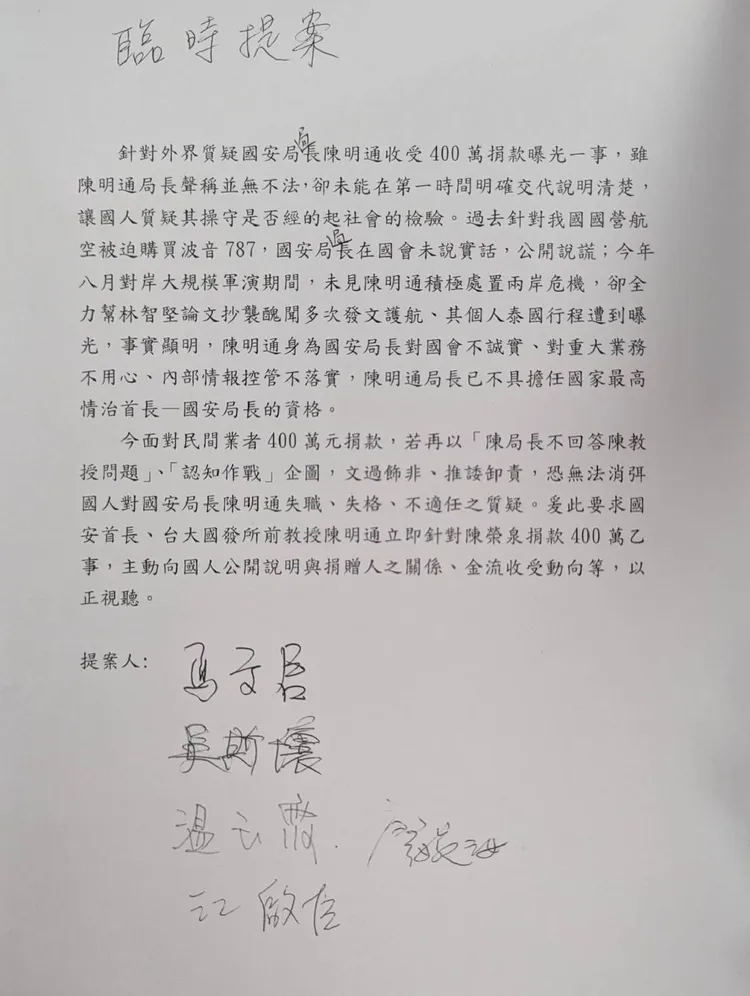 臨時提案
針對外界質疑國安局長陳明通收受 400 萬捐款曝光一事，雖
陳明通局長聲稱並無不法，卻未能在第一時間明確交代說明清楚，
讓國人質疑其操守是否經的起社會的檢驗。過去針對我國國營航
空被迫購買波音 787，國安局長在國會未說實話，公開說謊；今年
八月對岸大規模軍演期間，未見陳明通積極處置兩岸危機，卻全
力幫林智堅論文抄襲醜聞多次發文護航、其個人泰國行程遭到曝
光，事實顯明，陳明通身為國安局長對國會不誠實、對重大業務
不用心、內部情報控管不落實，陳明通局長已不具擔任國家最高
情治首長—國安局長的資格。
今面對民間業者 400 萬元捐款，若再以「陳局長不回答陳教
授問題」、「認知作戰」企圖，文過飾非、推諉卸責，恐無法消弭
國人對國安局長陳明通失職、失格、不適任之質疑。爰此要求國
安首長、台大國發所前教授陳明通立即針對陳榮泉捐款 400 萬乙
事，主動向國人公開說明與捐贈人之關係、金流收受動向等，以
正視聽。
提案人：
馬文君
吳斯懷
溫玉霞. 廖婉汝
江啟臣